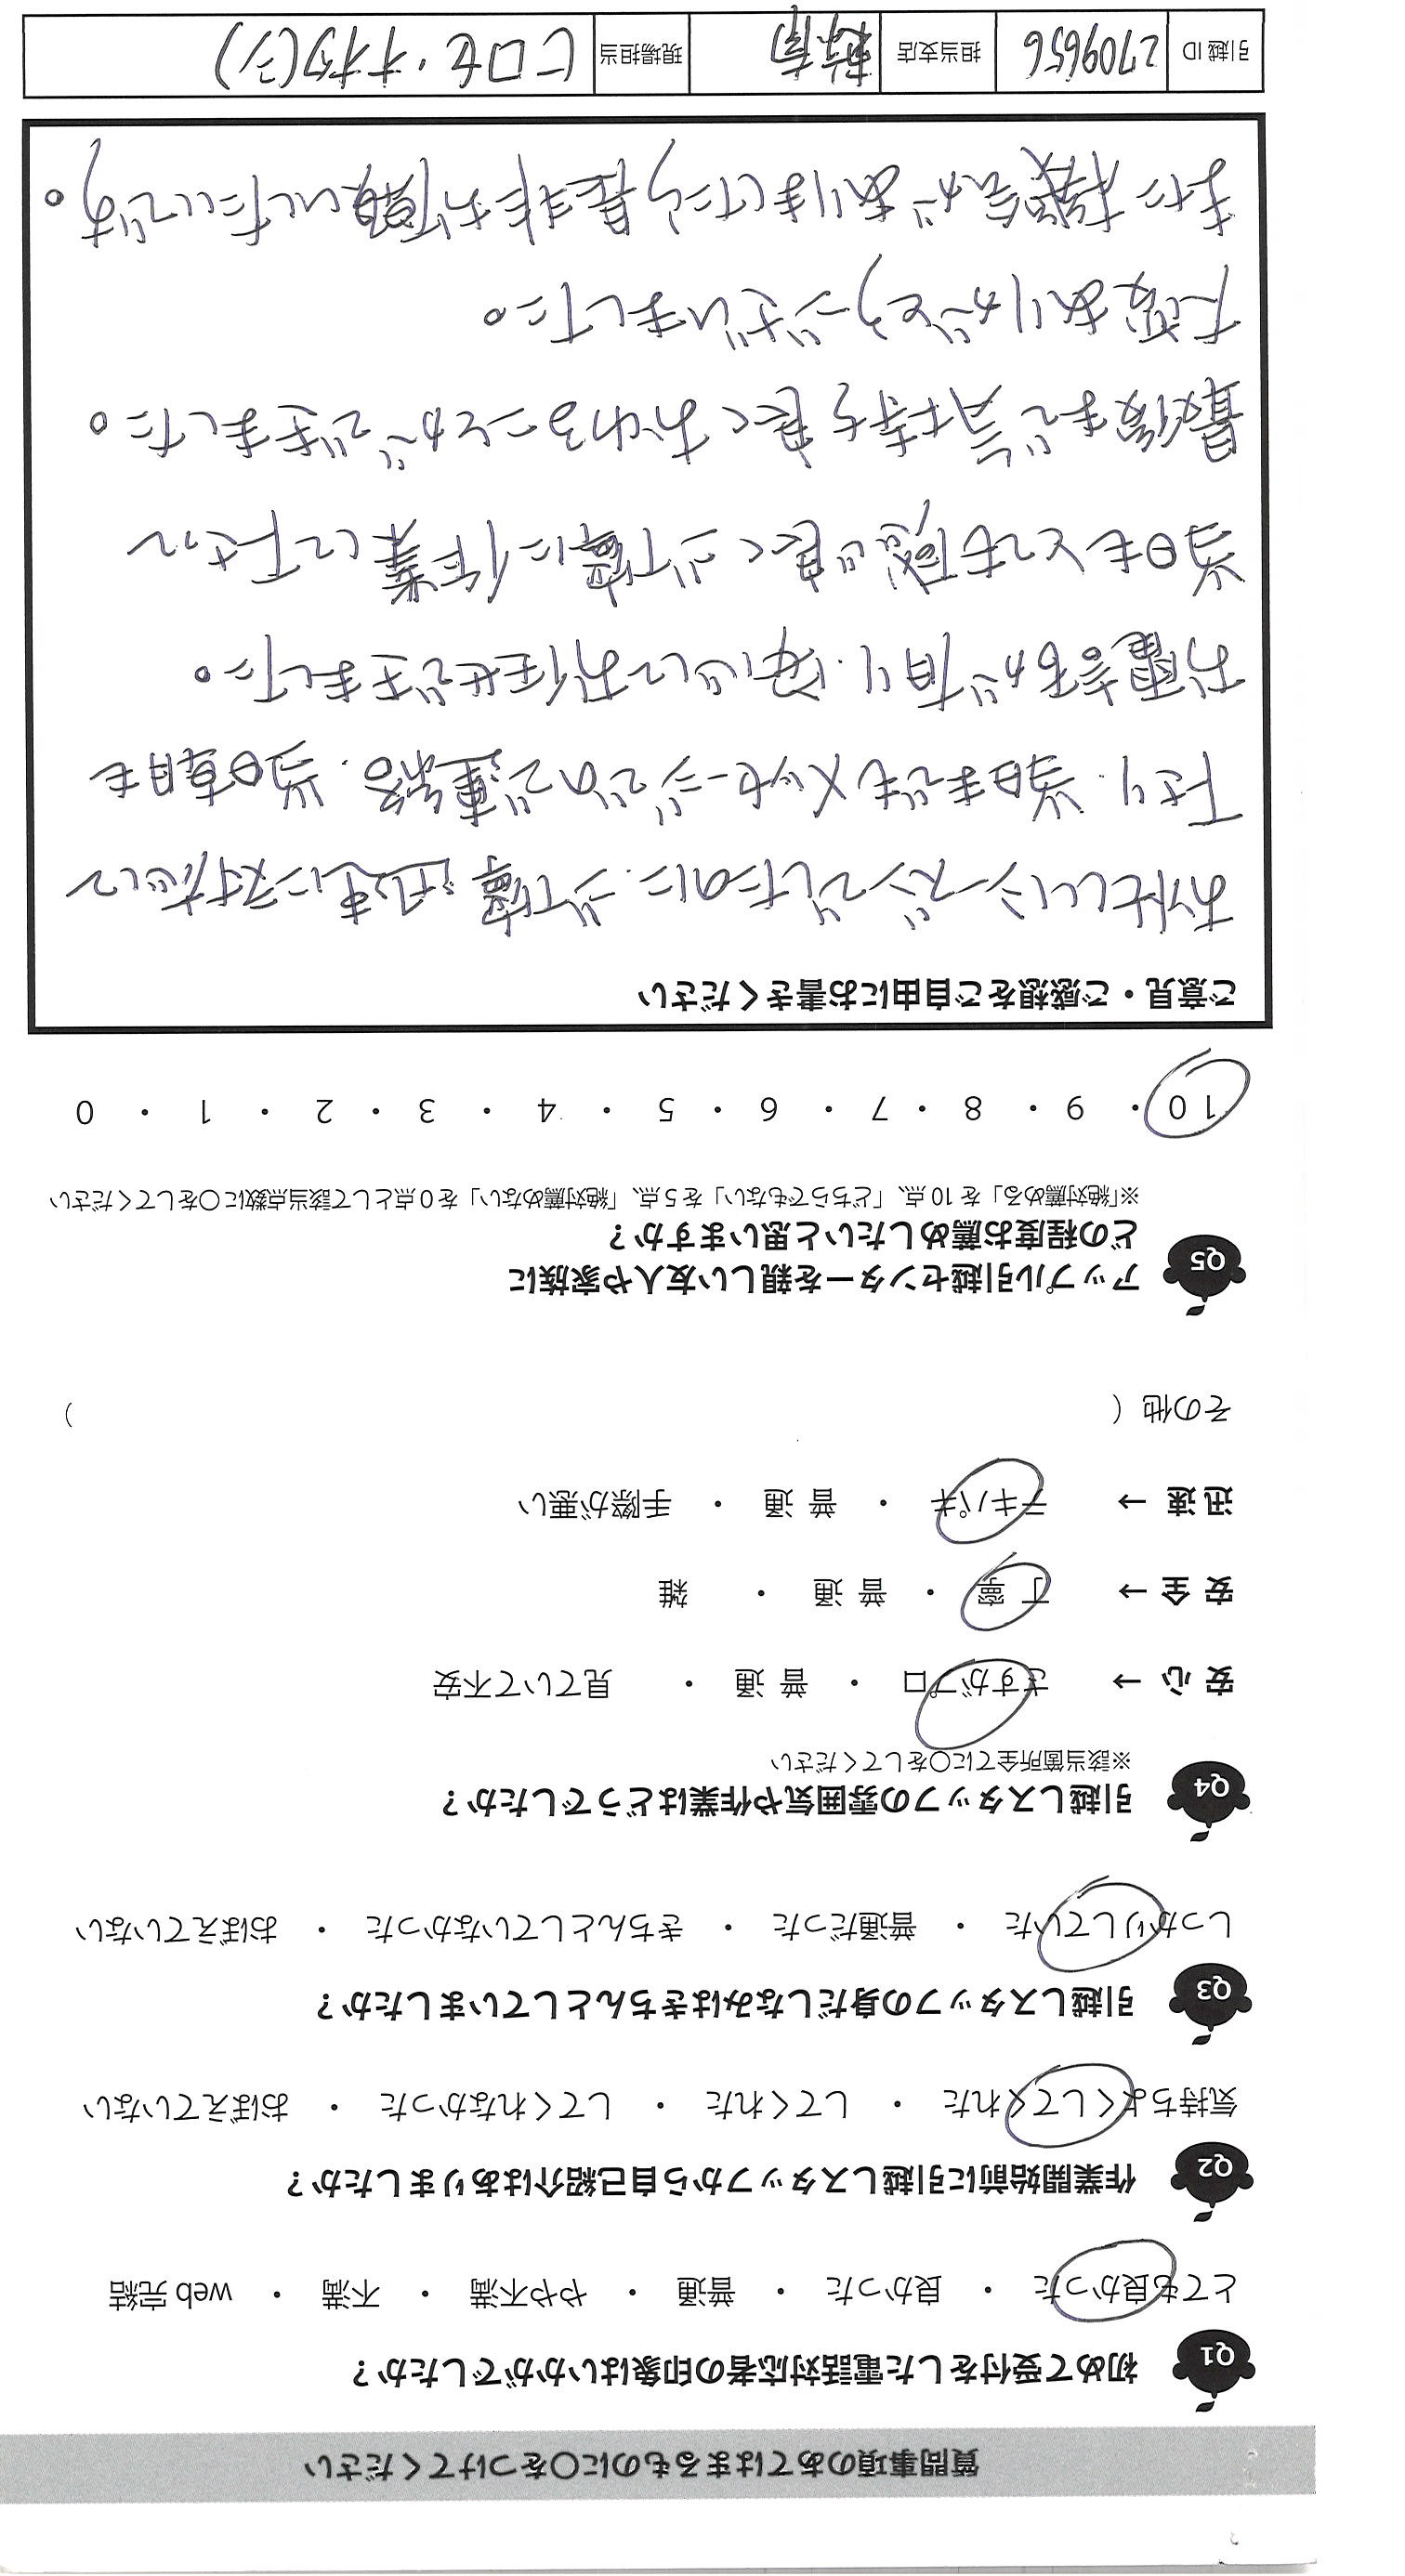 質問事項のあてはまるものに〇をつけてください
Q1 初めて受付をした電話対応者の印象はいかがでしたか？
とても良かった ・ 良かった ・ 普通 ・ やや不満 ・ 不満 ・ web 完結
Q2 作業開始前に引越しスタッフから自己紹介はありましたか？
気持ちよくしてくれた ・ してくれた ・ してくれなかった ・ おぼえていない
Q3 引越しスタッフの身だしなみはきちんとしていましたか？
しっかりしていた ・ 普通だった ・ きちんとしていなかった ・ おぼえていない
Q4 引越しスタッフの雰囲気や作業はどうでしたか？
※該当箇所全てに〇をしてください
安 心 → さすがプロ ・ 普 通 ・ 見ていて不安
安 全 → 丁 寧 ・ 普 通 ・ 雑
迅 速 → テキパキ ・ 普 通 ・ 手際が悪い
その他 ( )
Q5 アップル引越センターを親しい友人や家族に
どの程度お薦めしたいと思いますか？
※「絶対薦める」を 10 点、「どちらでもない」を 5 点、「絶対薦めない」を 0 点として該当点数に〇をしてください
10 ・ 9 ・ 8 ・ 7 ・ 6 ・ 5 ・ 4 ・ 3 ・ 2 ・ 1 ・ 0
ご意見・ご感想をご自由にお書きください
お忙しいシーズンでしたのに、ご丁寧、迅速に対応して
下さり、当日までもメッセージでのご連絡、当日朝も
お電話があり、安心してお任せできました。
当日もとても感じ良く、ご丁寧に作業して下さって
最後まで気持ち良くおわることができました。
大変ありがとうございました。
また機会がありましたら是非お願いしたいです。
引越 ID 2709656 担当支店 現場担当 ヒロセ・オオタ(シ)